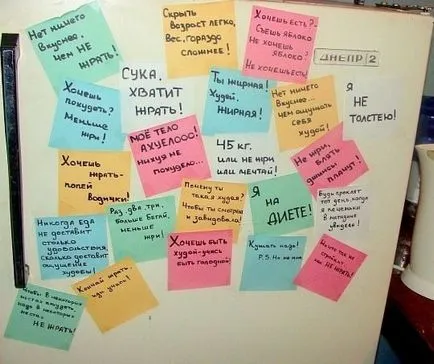 Нет ничего
вкуснее,
чем НЕ
ЖРАТЬ!
Скрыть
возраст легко,
вес, гораздо
сложнее!
Хочешь есть?
Съешь яблоко
Не хочешь
яблоко?
Не хочешь есть!
ДНЕПР 2
Хочешь
похудеть?
Меньше
жри!
СУКА,
ХВАТИТ
ЖРАТЬ!
Ты жирная!
Худей,
жирная!
Нет ничего
вкуснее...
чем ощущать
себя
худой!
Я
НЕ
ТОЛСТЕЮ!
Хочешь
жрать-
попей
водички!
МОЁ ТЕЛО
АХУЕЛООО!
нихуя не
похудело...
45 кг.
или не жри
или мечтай!
Не жри,
блять
планам!
Никогда еда
не доставит
столько
удовольствия,
сколько доставит
ощущение
худобы!
Раз, два, три,
больше бегай,
меньше
жри!
Почему ты
такая худая?
Чтобы ты смотрела
и завидовала!
Я
НА
ДИЕТЕ!
Будь проклят
тот день, когда
я печеньки
в магазине
увидела!
Чтобы в некоторых
местах похудеть,
надо в некоторых
местах
НЕ ЖРАТЬ!
Кончай жрать,
иди учись!
Хочешь быть
худой-учись
быть голодной!
Кушать надо!
P.S. Но не мне
Ничто так не
стройнит
как НЕ ЖРАТЬ!